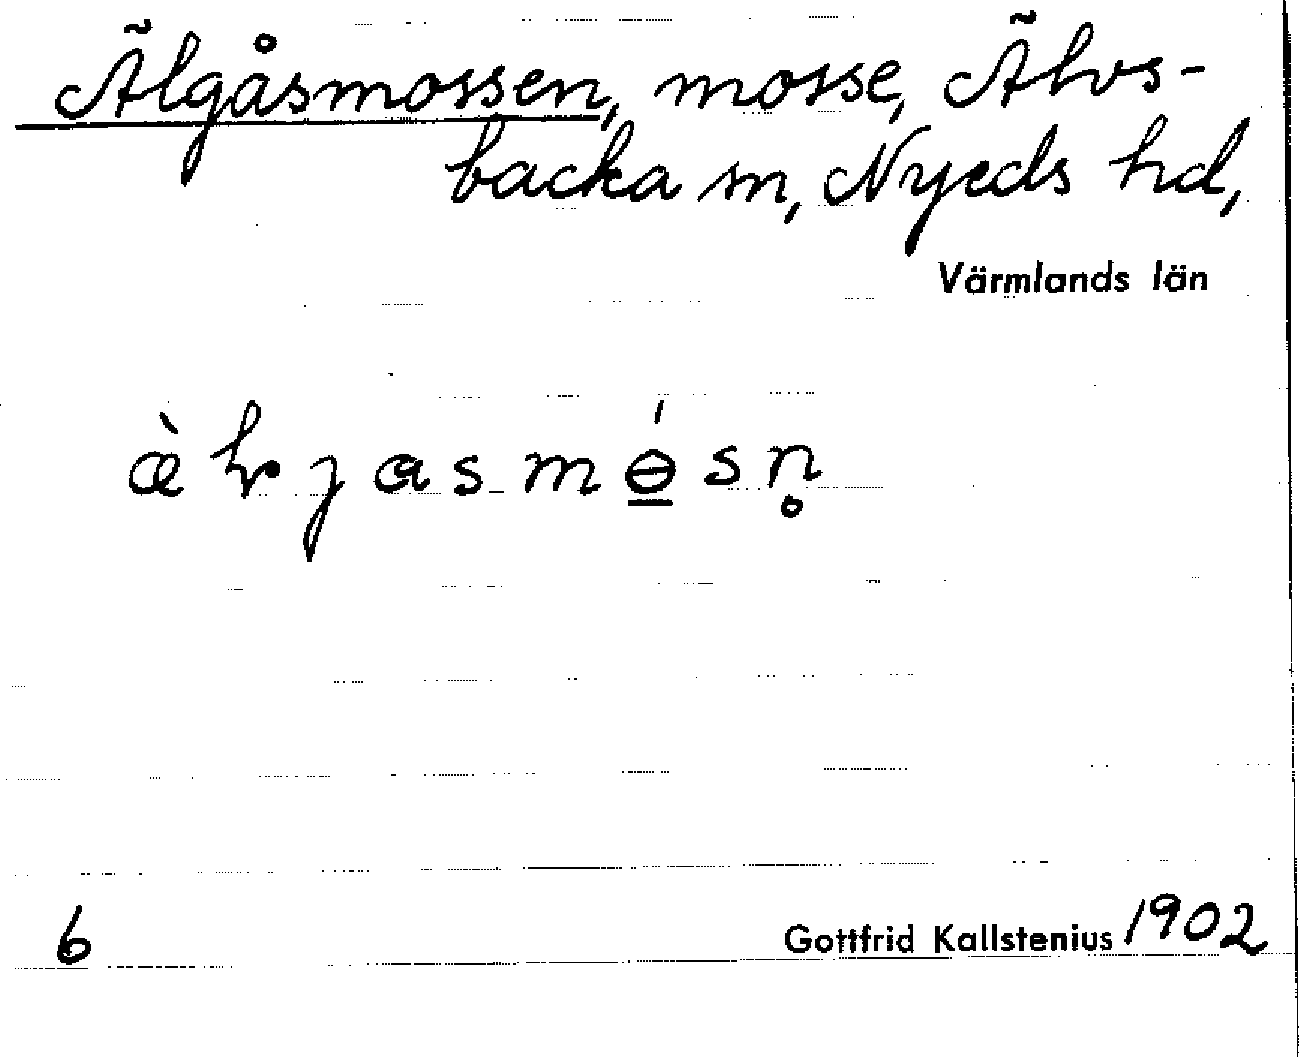 Älgåsmossen, mosse, Älvs-
backa sn, Nyeds hd,
Värmlands län
6
Gottfrid Kallstenius 1902